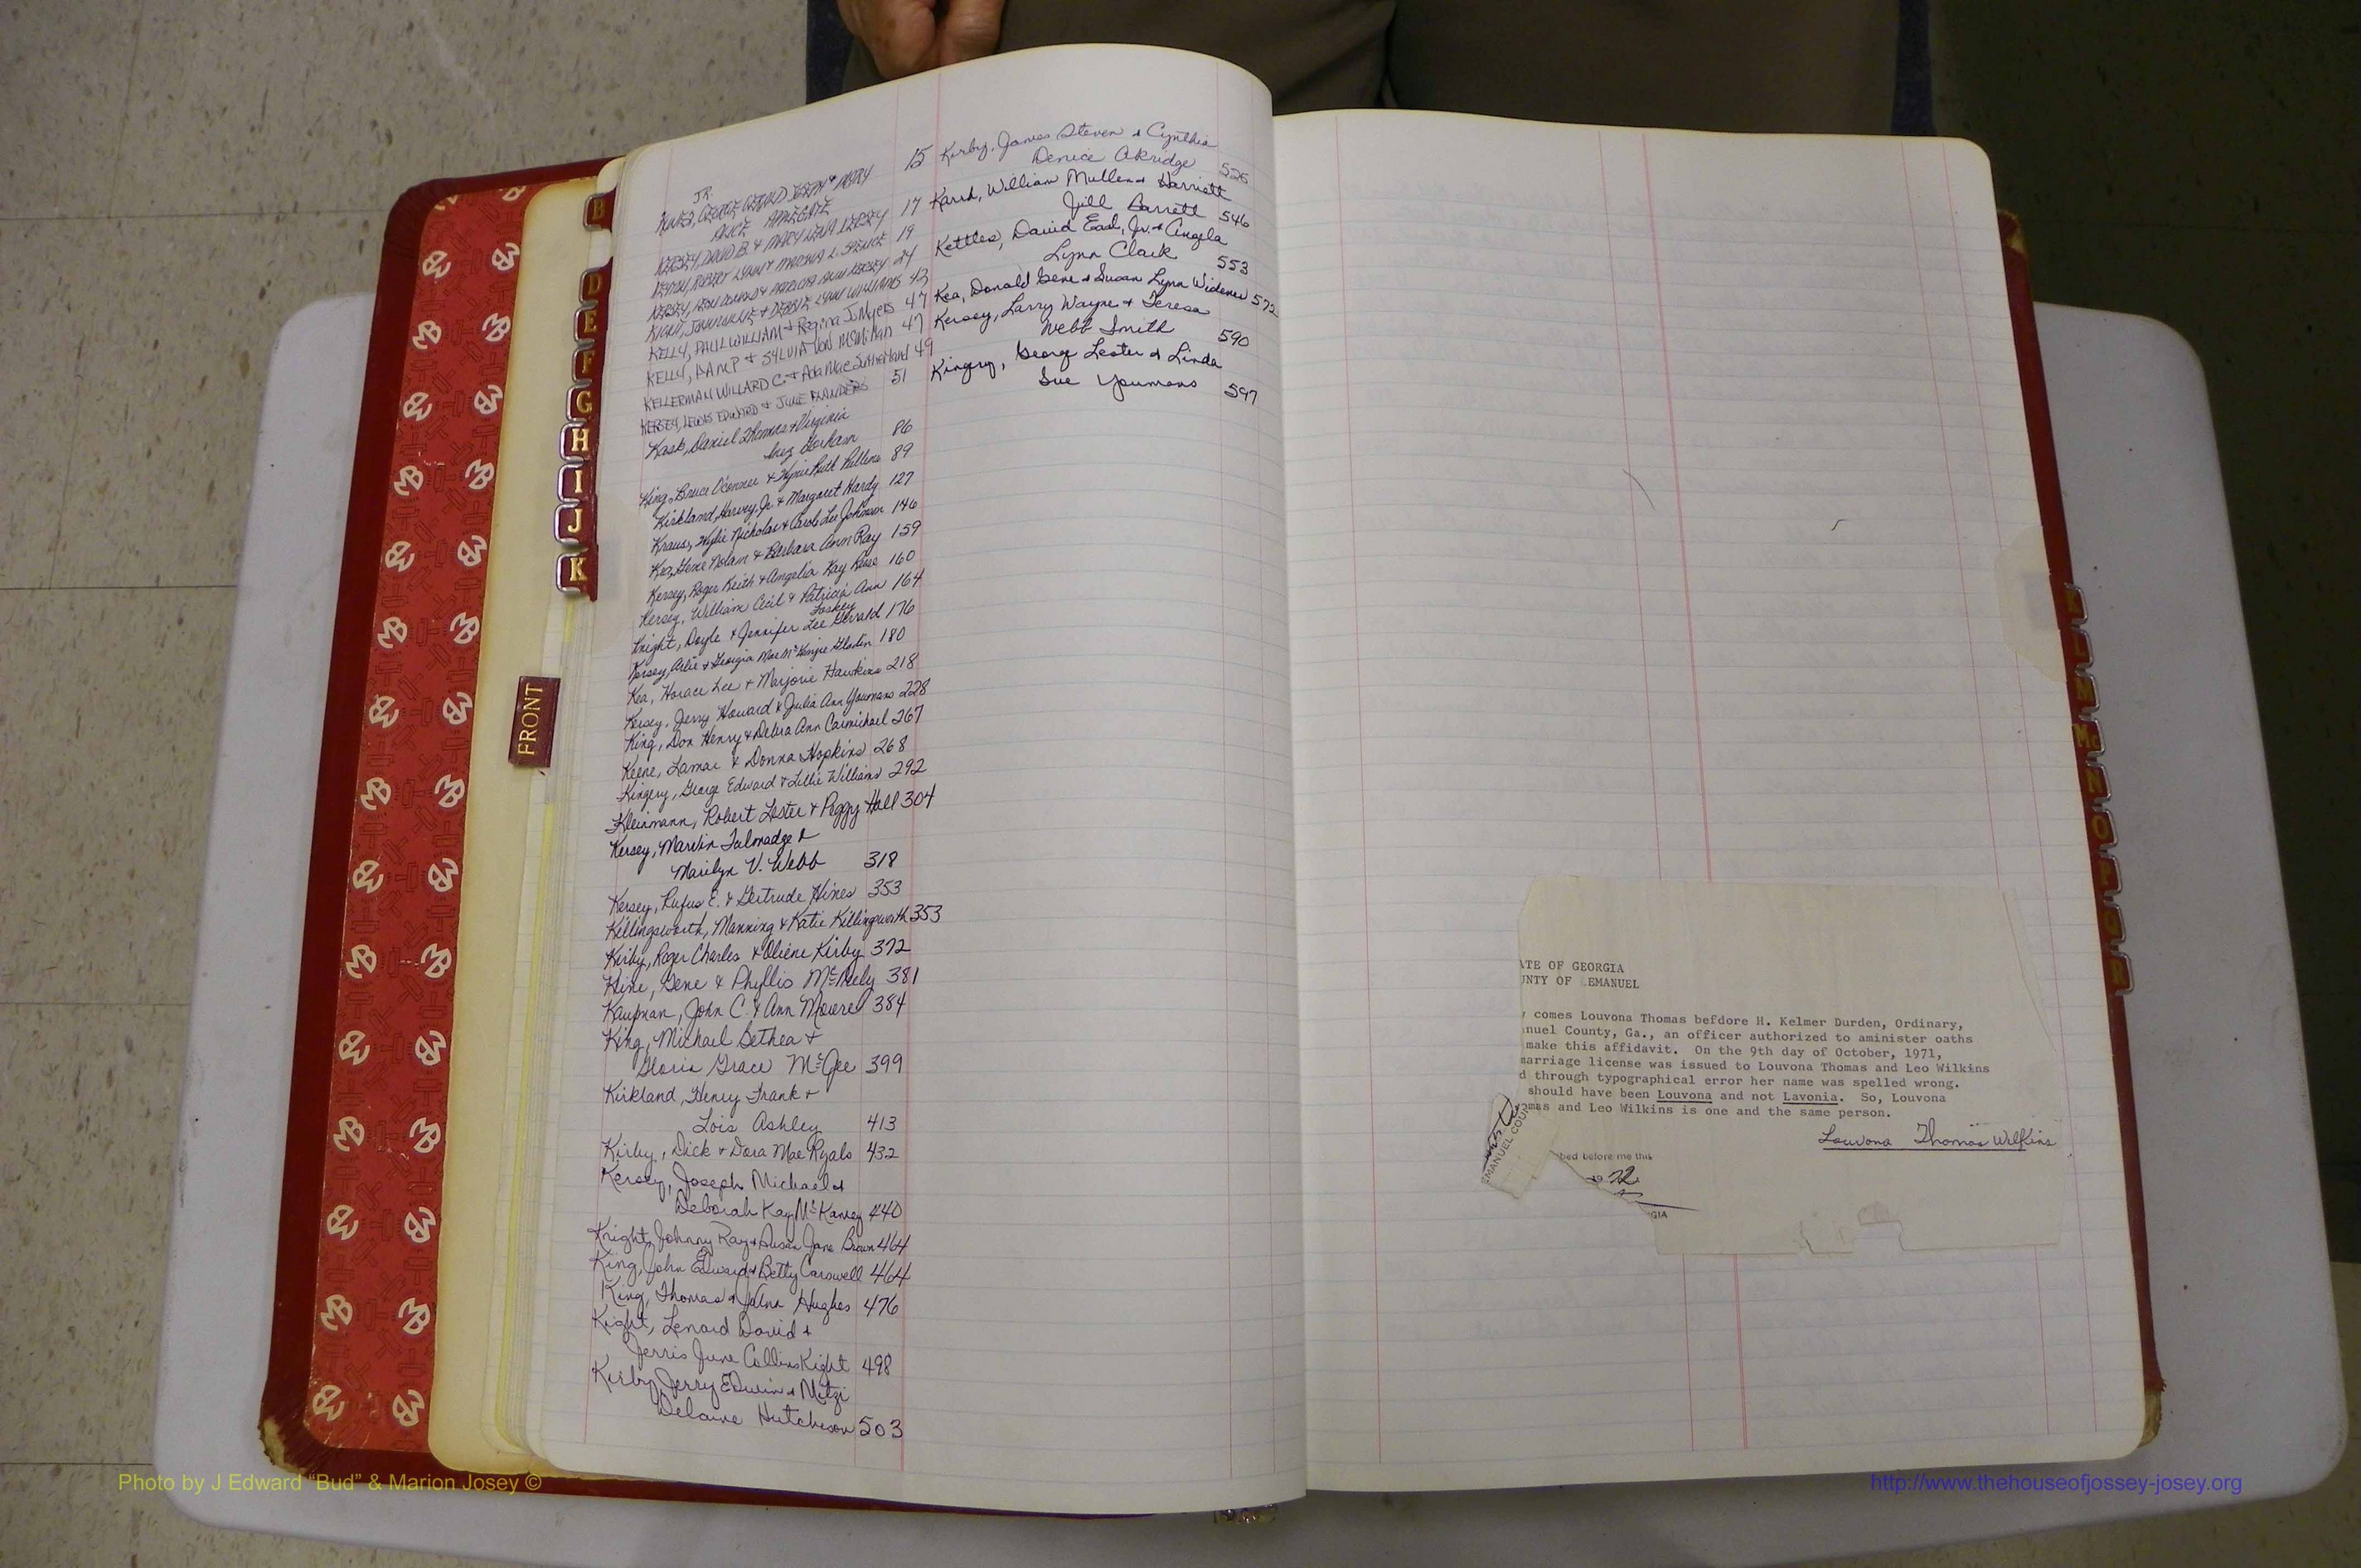 JR.
15
ALICE APPLEGATE
KERSEY, DAVID B. & MARY LENA KERSEY 17
19
24
KIGHT, JOHN WILLIE & DEBBIE LYNN WILLIAMS 43
KELLY, PAUL WILLIAM & Regina J. Myers 47
KELLY, DAN P & SYLVIA VON McMillan 47
KELLERMAN WILLARD C. & Ada Mae Sutherland 49
KERSEY, LEWIS EDWARD & JUNE FLANDERS 51
Kask, Daniel Thomas & Virginia
Inez Gorham 86
King, Bruce O'Conner & Ruth 89
Kirkland, Harvey, Jr. & Margaret Hardy 127
Kraus, Wylie Nicholas & Carole Lee Johnson 146
Kea, Gene Nolan & Barbara Ann Ray 159
Kersey, Roger Keith & Angelia Kay Rowe 160
Kersey, William Cecil & Patricia Ann 164
Foskey
Knight, Doyle & Jennifer Lee Gerrald 176
Kersey, Arlie & Georgia Mae 180
Kea, Horace Lee & Marjorie Hawkins 218
Kersey, Jerry Howard & Julia Ann Youmans 228
King, Don Henry & Debra Ann Carmichael 267
Keene, Lamar & Donna Hopkins 268
Kingery, George Edward & Lillie Williams 292
Kleinmann, Robert Lester & Peggy Hall 304
Kersey, Marvin Talmadge &
Marilyn V. Webb 318
Kersey, Rufus E. & Gertrude Hines 353
Killingsworth, Manning & Katie Killingsworth 353
Kirby, Roger Charles & Oliene Kirby 372
Gene & Phyllis McNeely 381
Kaupman, John C. & Ann Moore 384
King, Michael Bethea &
Gloria Grace McGee 399
Kirkland, Henry Frank &
Lois Ashley 413
Kirby, Dick & Dora Mae Ryals 432
Kersey, Joseph Michael &
Deborah Kay 440
Knight, Johnny Ray & Susan Jane Brown 464
King, John Edward & Betty Carswell 464
King, Thomas & Hughes 476
Kight, Lenard David &
Jerris June Collins Kight 498
Kirby, Jerry Edwin & Mitzi
Delaine Hutcheson 503
Kirby, James Steven & Cynthia
Denice Akridge 526
William Mullen & Harriett
Jill Barrett 546
Kettles, David Earl, Jr. & Angela
Lynn Clark 553
Kea, Donald Gene & Susan Lynn Widener 572
Kersey, Larry Wayne & Teresa
Webb Smith 590
Kingry, George Lester & Linda
Sue Youmans 597
B
D
E
F
G
H
I
J
K
FRONT
L
M
Mc
N
O
P
Q
R
ATE OF GEORGIA
UNTY OF EMANUEL
y comes Louvona Thomas befdore H. Kelmer Durden, Ordinary,
nuel County, Ga., an officer authorized to aminister oaths
make this affidavit. On the 9th day of October, 1971,
marriage license was issued to Louvona Thomas and Leo Wilkins
d through typographical error her name was spelled wrong.
should have been Louvona and not Lavonia. So, Louvona
omas and Leo Wilkins is one and the same person.
Louvona Thomas Wilkins
EMANUEL COUN
bed before me this
1972
GIA
Photo by J Edward "Bud" & Marion Josey ©
http://www.thehouseofjossey-josey.org